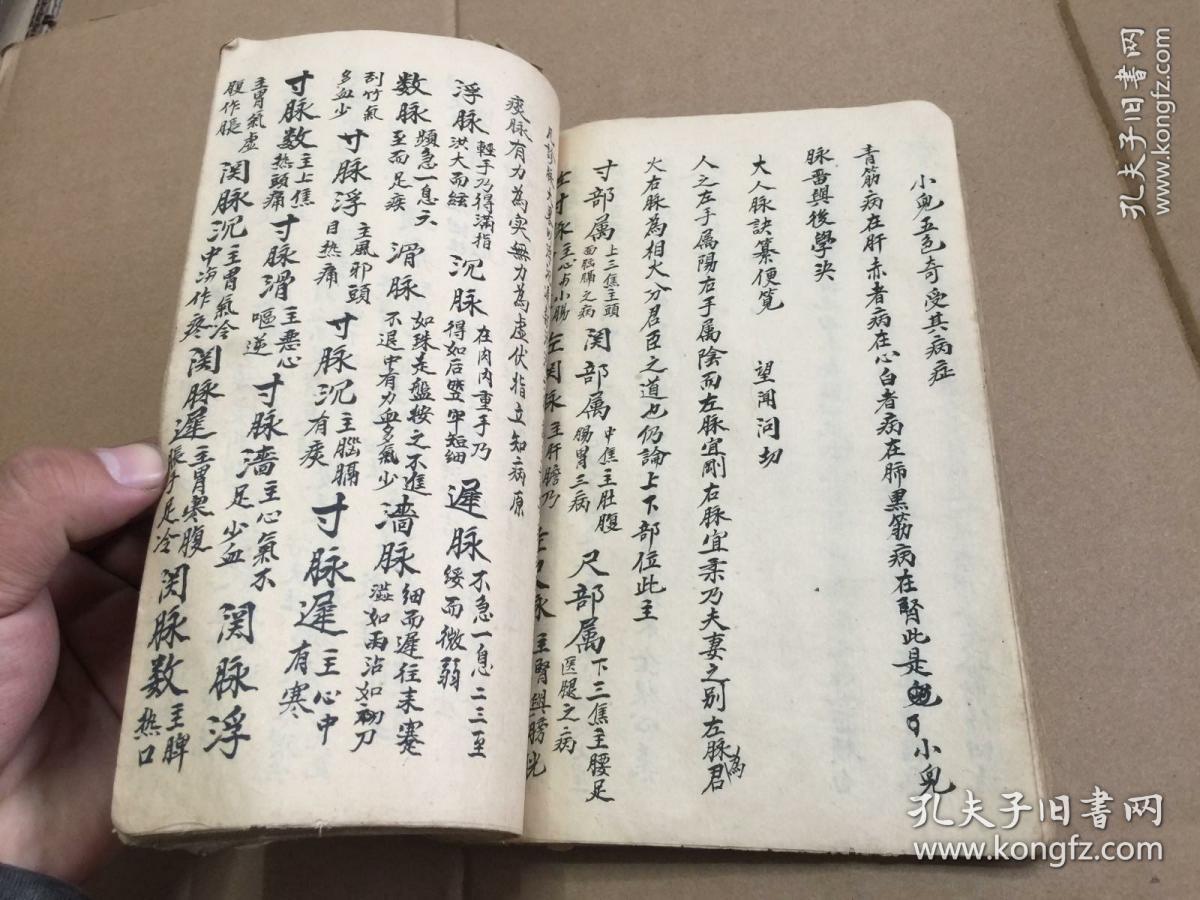 小兒五色奇受其病症
青筋病在肝赤者病在心白者病在肺黑筋病在腎此是 小兒
脉畨與後學决
大人脉訣纂便覧 望聞问切
人之左手属陽右手属陰而左脉宜剛右脉宜柔乃夫妻之别左脉為君
火右脉為相火分君臣之道也仍論上下部位此主
寸部属 上三焦主頭面 之病 関部属 中焦主肚腹腸胃三病 尺部属 下三焦主腰足 腿之病
左寸脉 主心与小腸 左関脉 主肝胆乃 左尺脉 主腎與膀光
痰脉有力為実無力為虚伏指立知病原
浮脉 輕手乃得滿指洪大而 沉脉 在肉内重手乃得如石 牢短細 遲脉 不急一息二三至緩而微弱
数脉 頻急一息六至而足疾 滑脉 如珠走盤按之不進不退中有力血多氣少 濇脉 細而遲往来蹇澁如雨沾如初刀
刮竹氣多血少 寸脉浮 主風邪頭目热痛 寸脉沉 主腦膈有痰 寸脉遲 主心中有寒
寸脉数 主上焦热頭痛 寸脉滑 主悪心嘔逆 寸脉濇 主心氣不足少血 関脉浮
主胃氣虚腹作脹 関脉沉 主胃氣冷中 作疼 関脉遲 主胃寒腹脹手足冷 関脉数 主脾热口
孔夫子旧书网
www.kongfz.com
孔夫子旧书网
www.kongfz.com